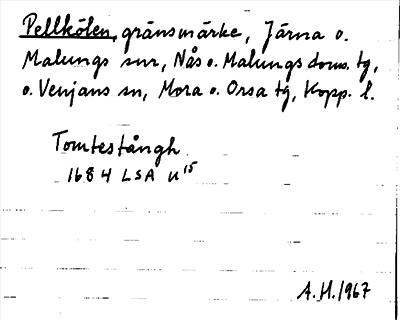 Pellkölen, gränsmärke, Järna o.
Malungs snr, Nås o. Malungs doms. tg,
o. Venjans sn, Mora o. Orsa tg, Kopp. l.
Tomtestångh
1684 LSA U¹⁵
A.H. 1967